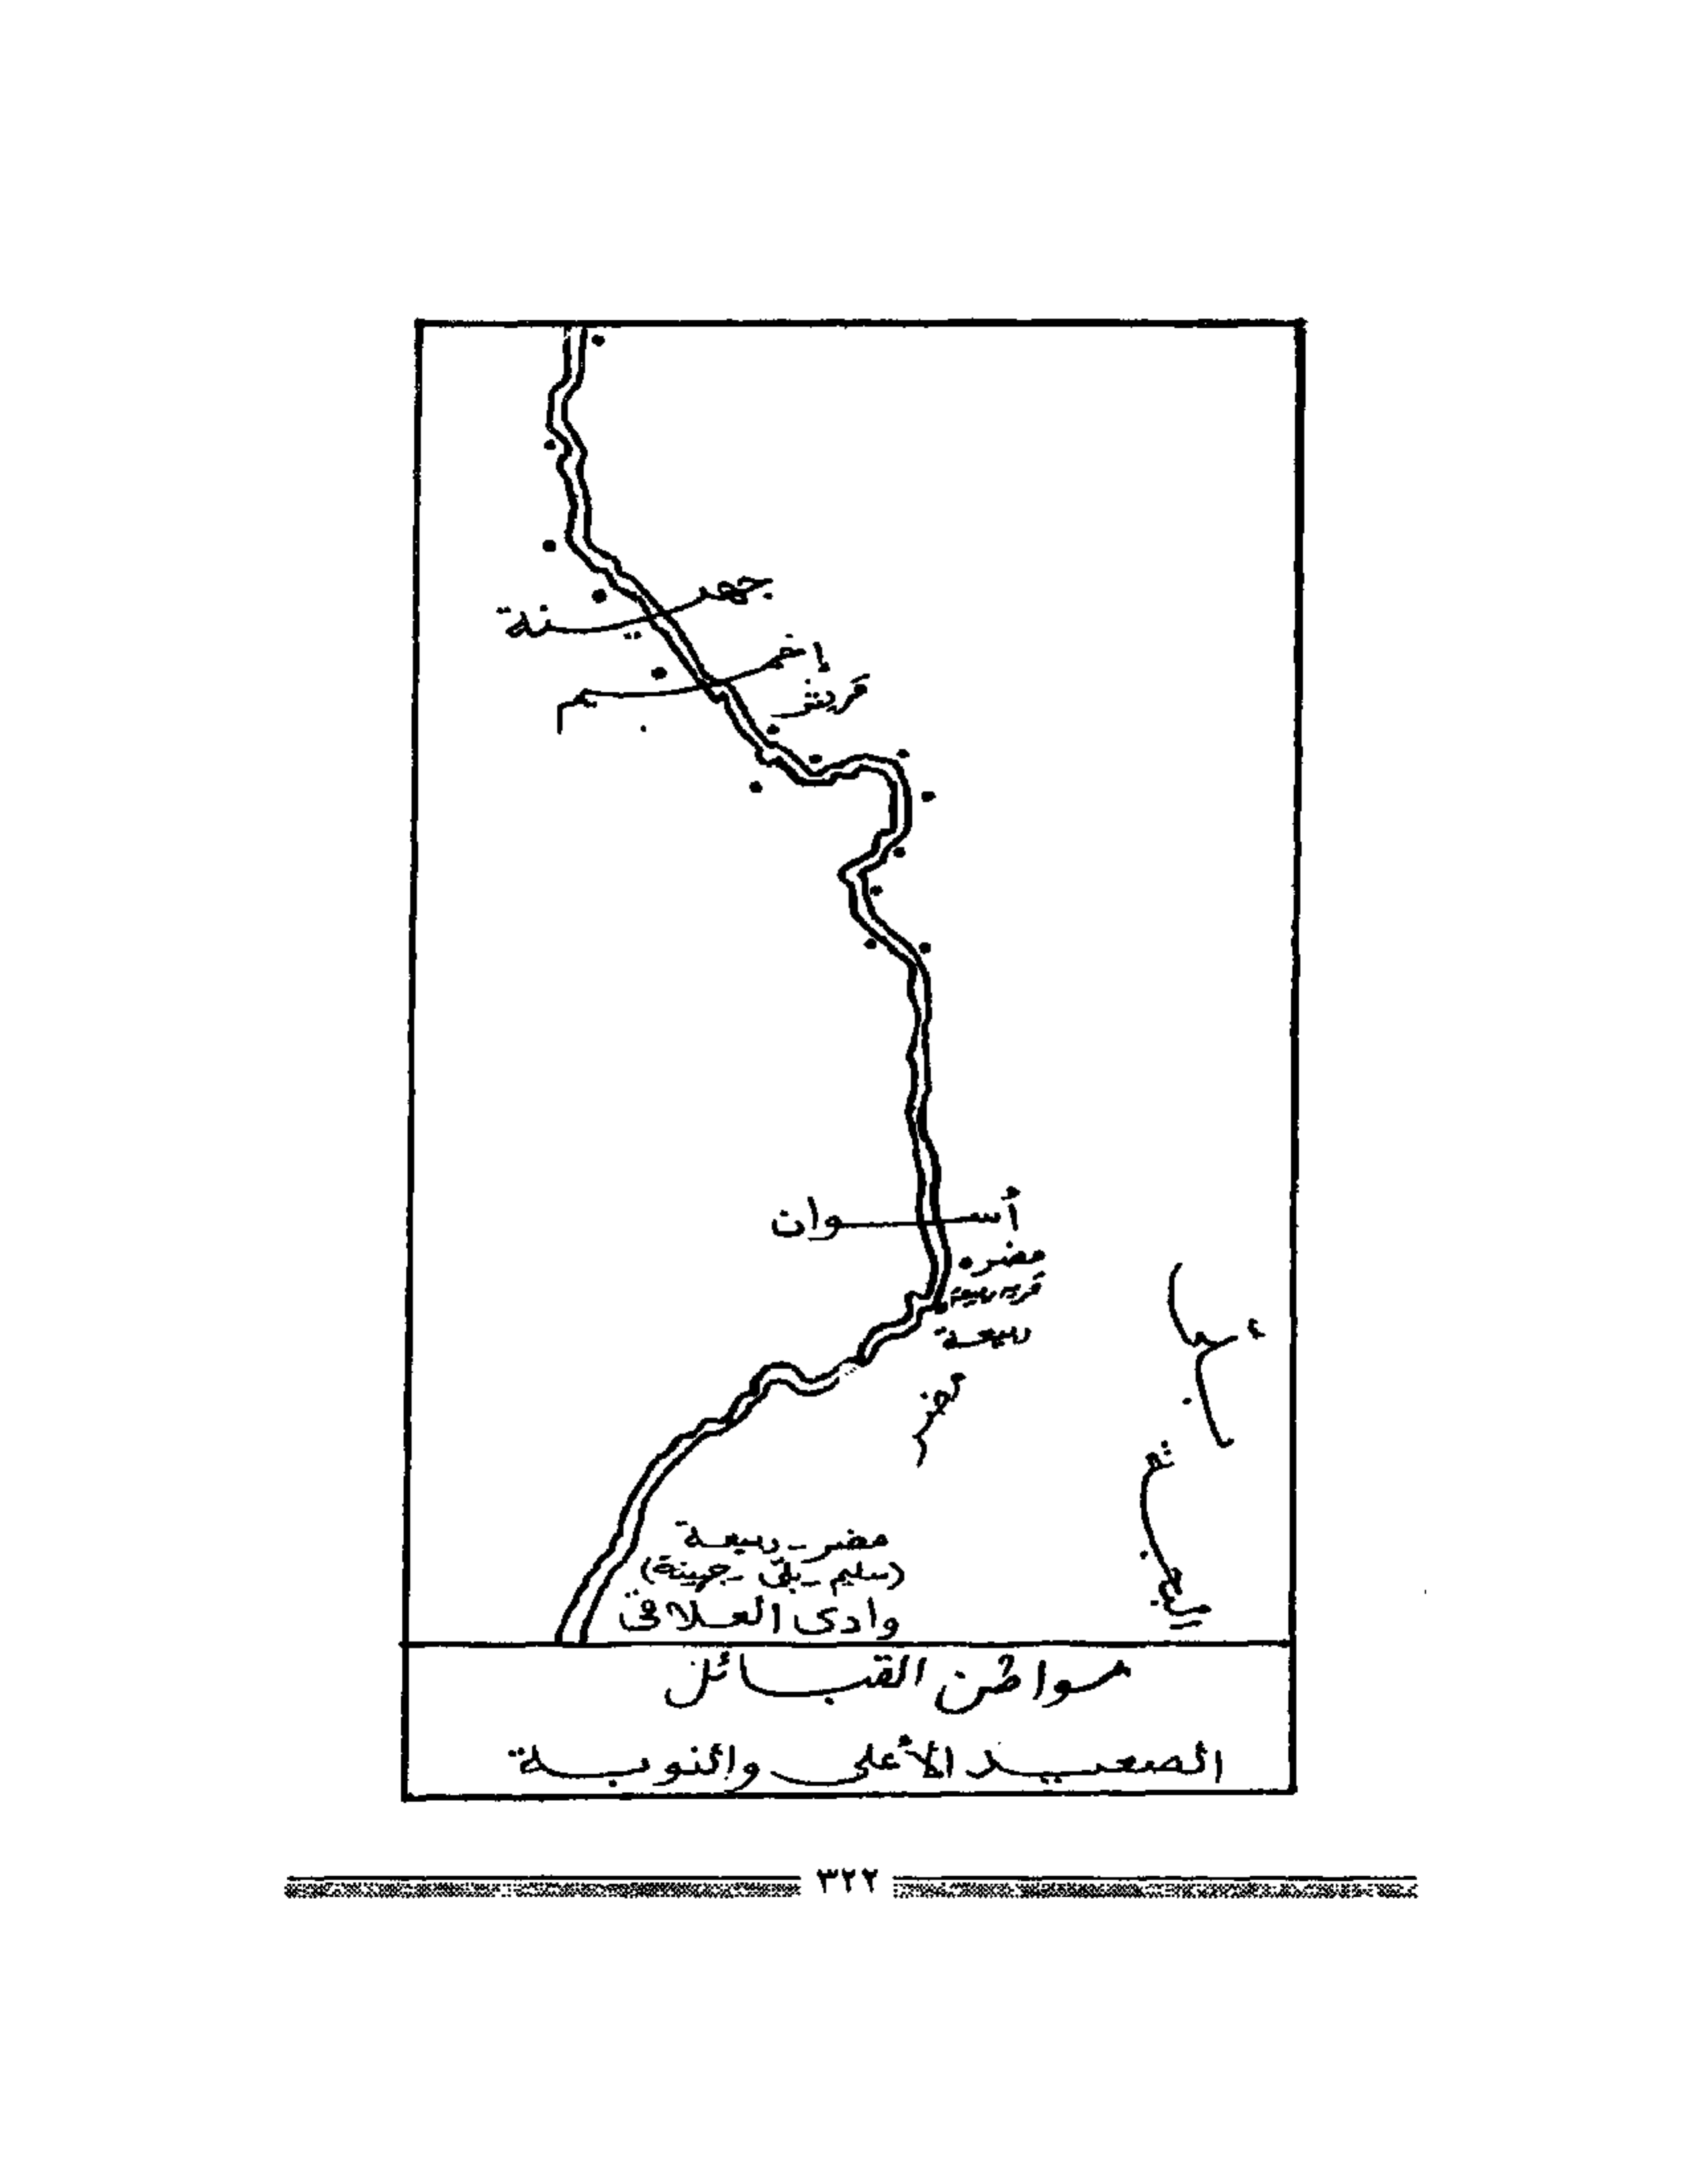 جهينة
اخميم
قريش
أسوان
مضر
ربيعة
مضر
مضر - ربيعة
(سليم - بلى - جهينة)
وادى العلاقى
مواطن القبائل
الصعيد الأعلى والنوبة
٣٢٢